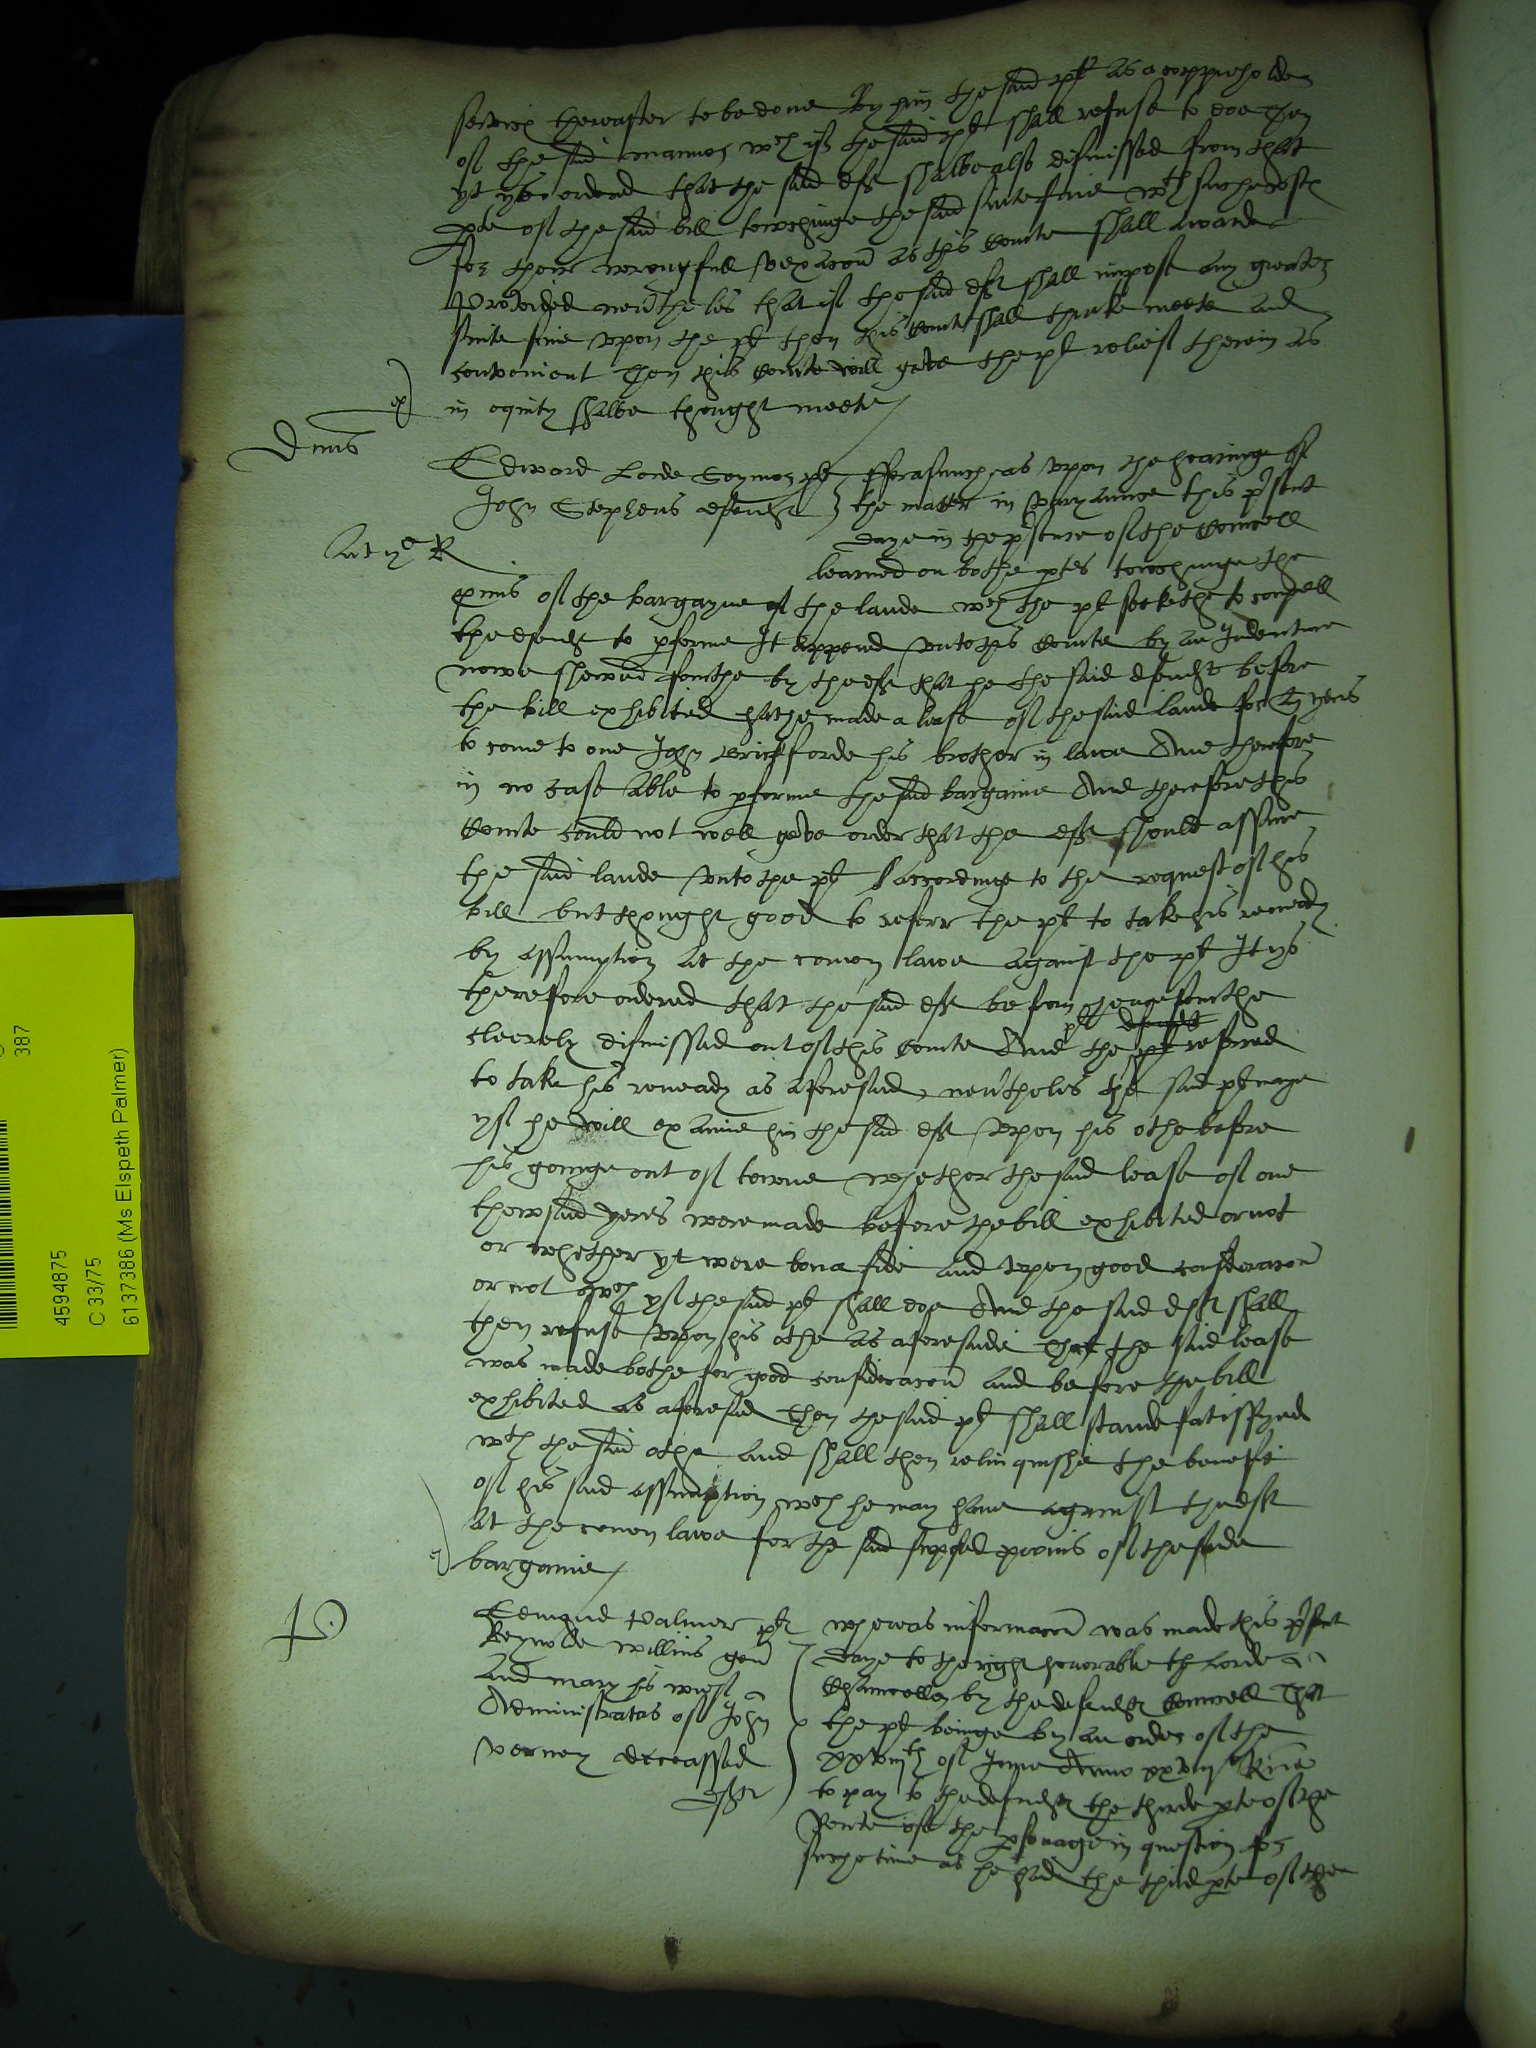 service thereafter to be done By him the said plt as a coppieholder
of the said mannor wch if the said plt shall refuse to doe Then
yt ys ordered that the said deft shalbe also dismissed from that
pte of the said bill towchinge the said suite fine wth suche costs
for their wrongfull vexacon as this Courte shall awarde
Provided nevtheles that if the said deft shall impose any greater
suite fine upon the plt then this Court shall thinke meete and
convenient Then this Courte will geve the plt relief therein as
in equity shalbe thought meete
Edward Lorde Seymor plt
John Stephens defendt
fforasmuch as upon the hearinge of
the matter in varyaunce this p'sent
daye in the p'sence of the Councell
learned on bothe ptes towchinge the
pmis of the bargayne of the lande wch the plt seekethe to compell
the defendt to pforme It appered unto this Courte by an Indenture
nowe shewed fourthe by the deft that he the said defendt before
the bill exhibited hathe made a lease of the said lande for yeres
to come to one John his brother in lawe And therefore
in no case able to pforme the said bargaine And therefore this
Courte could not well geve order that the deft should assure
the said lande unto the plt accordinge to the request of his
bill but thought good to referr the plt to take his remedy
by assumption at the comon lawe against the plt It ys
therefore ordered that the said deft be from hencefourthe
cleerely dismissed out of this Courte And the plt referred
to take his remeady as aforesaid, nevtheles the said plt maye
yf he will examine him the said deft upon his othe before
his goinge out of towne whether the said lease of one
thowsand yeres were made before the bill exhibited or not
or whether yt were bona fide and upon good consideracon
or not wch yf the said plt shall doe And the said deft shall
then upon his othe as aforesaide That the said lease
was made bothe for good consideracon and before the bill
exhibited as aforesaid Then the said plt shall stande satisffyed
wth the said othe and shall then relinquishe the benefit
of his said assumption wch he may have against the deft
at the comon lawe for the said supposed promis of the saide
bargaine
Edmund Palmer plt
Reynolde Willms gent
and Mary his wief
Administratas of John
Verney deceassed
defts
Whereas informacon was made this p'sent
daye to the right honorable the Lorde
Chauncellor by the defendts Councell That
the plt beinge by an order of the
xxviijth of June Anno xxviijo Rne
to pay to the defendts the thirde pte of the
Rente of the psonage in question for
suche time as he had the third pte of the
4594875
C 33/75
6137386 (Ms Elspeth Palmer)
387